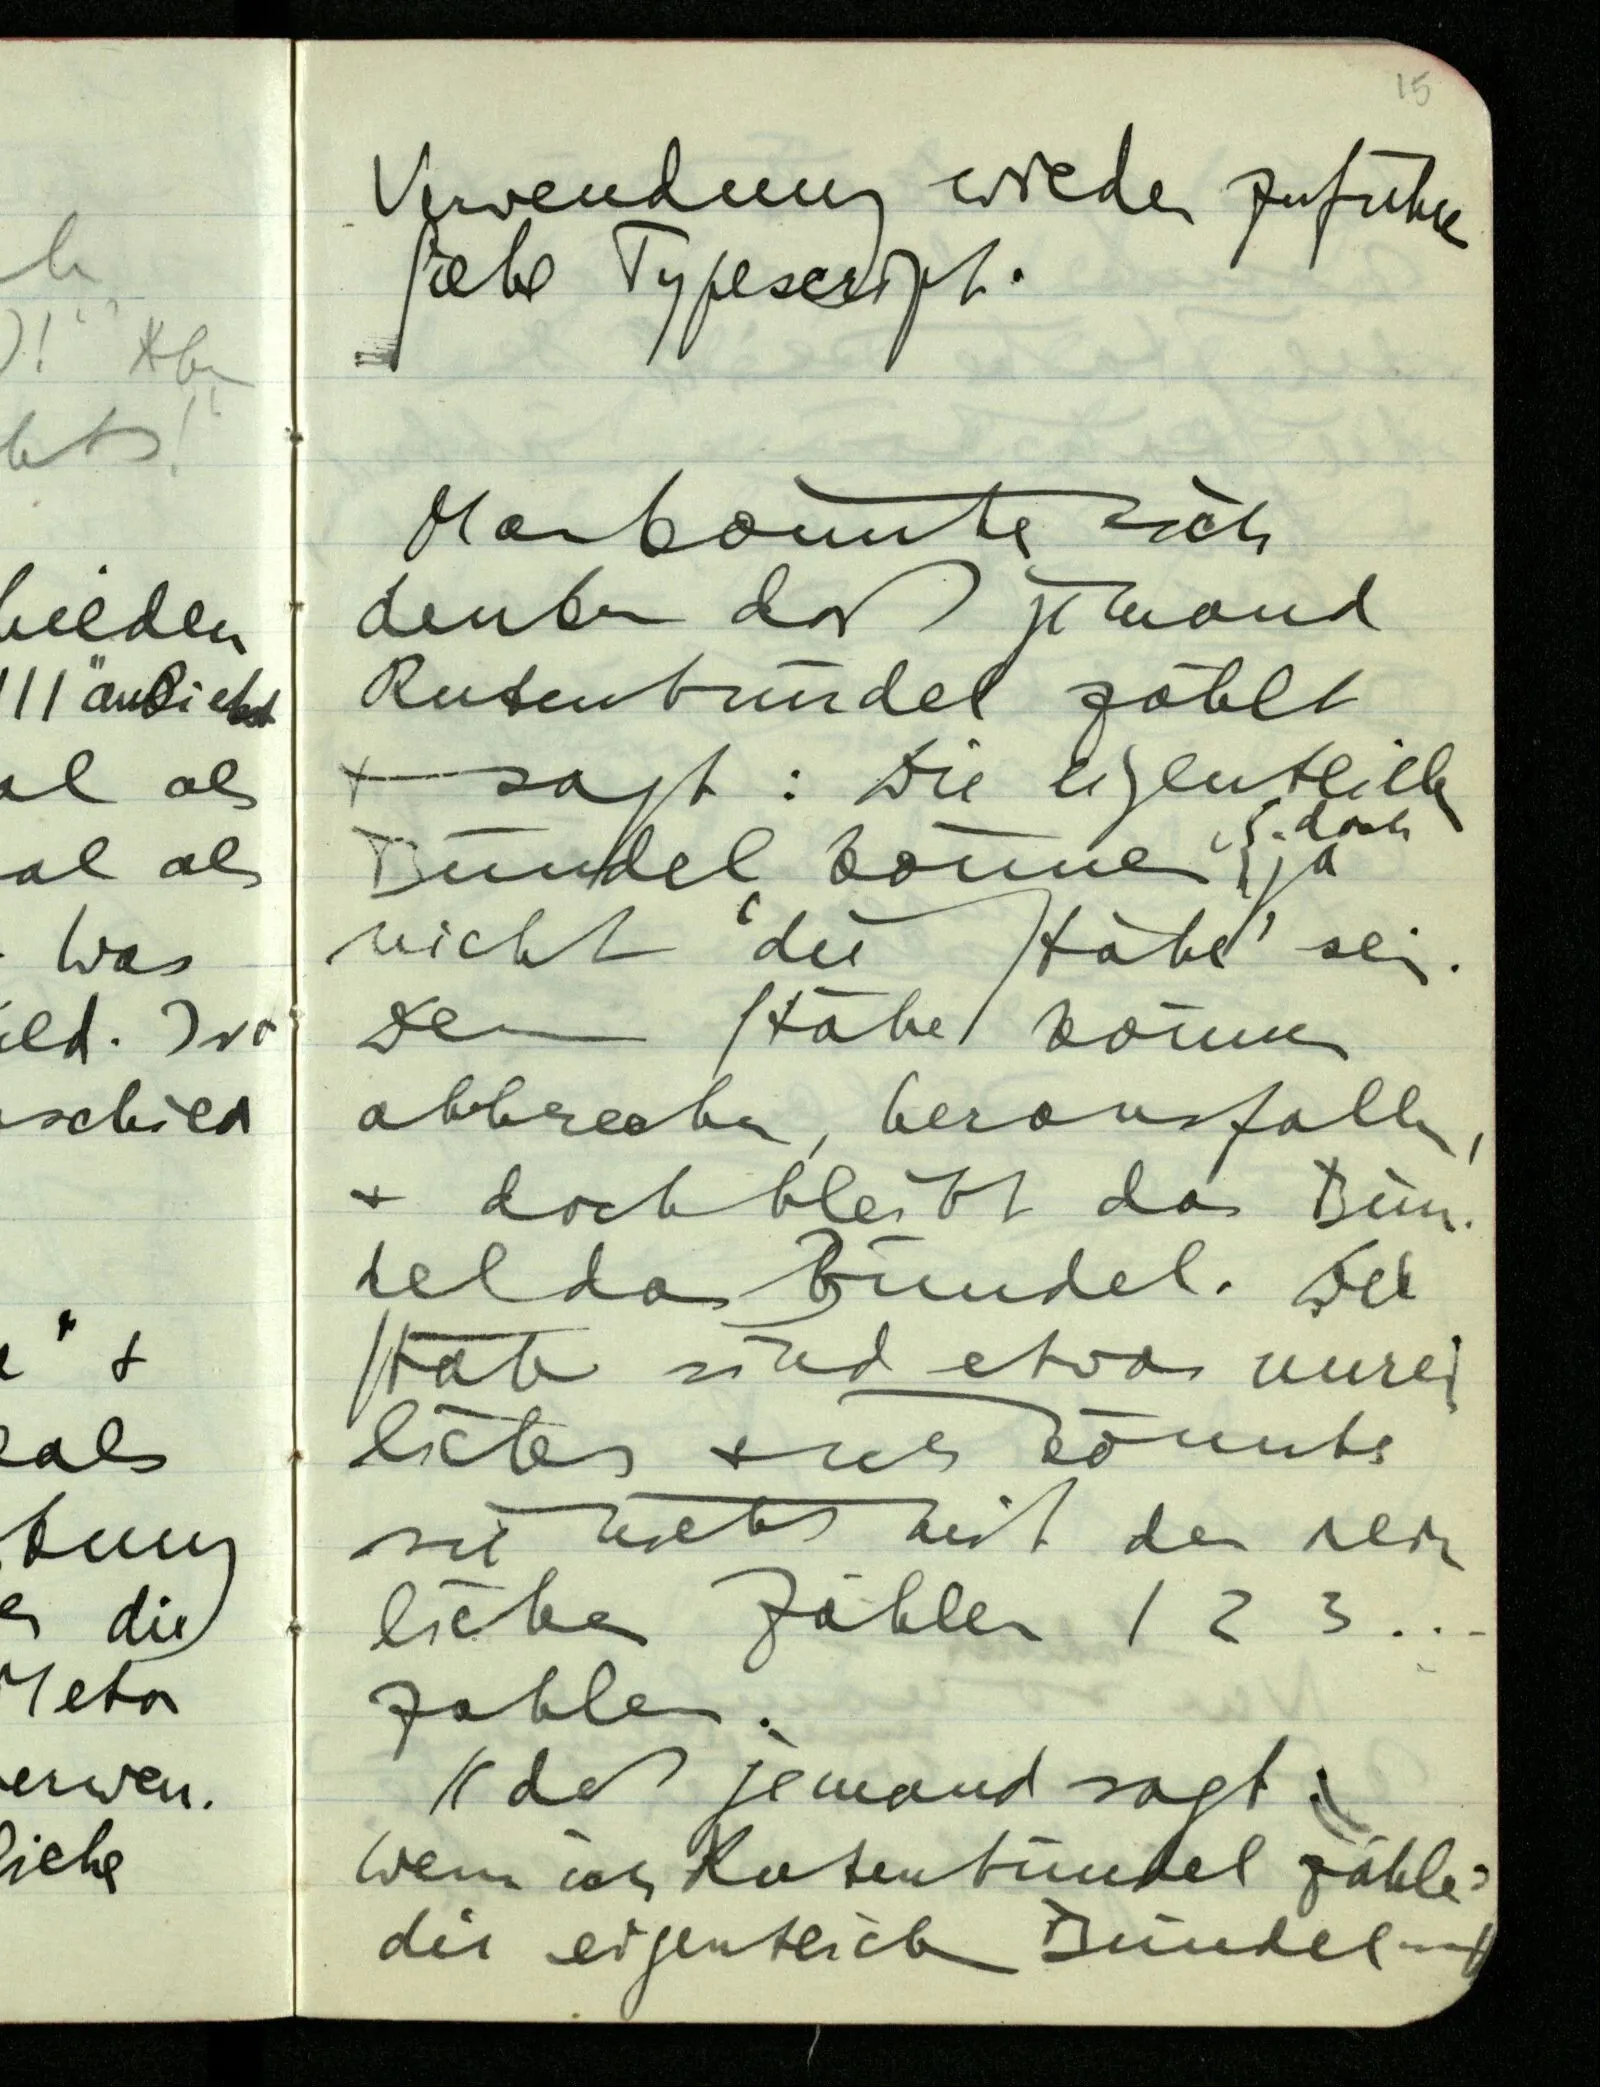 15
Verwendung wieder zuführe
siehe Typescript.
Man könnte sich
denken daß jemand
Rutenbündel zählt
+ sagt: Die eigentlich
doch
Bündel können ja
nicht 'die Stäbe' sein.
Denn Stäbe können
abbrechen, herausfallen,
+ doch bleibt das Bün-
del das Bündel. Die
Stäbe sind etwas unrein
liches + man könnte
sie nicht mit den rein
lichen Zahlen 1 2 3...
zählen.
// daß jemand sagt:
Wenn ich Rutenbündel zähle:
die eigentlich Bündel
h
)!" Aber
chts!"
hieden
III" ansieht
al als
al als
Was
ild. Ist
schied
e" +
als
tung
die
Meta
verwen.
liche